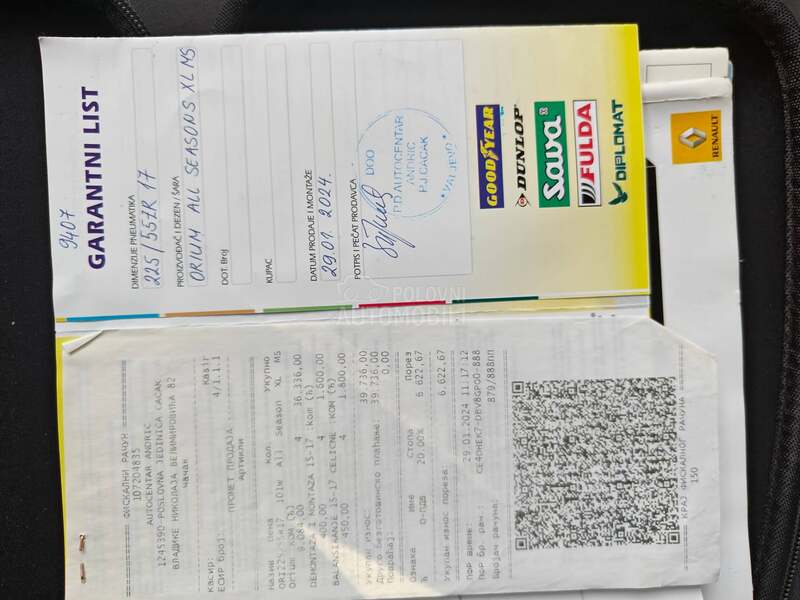 9407
GARANTNI LIST
DIMENZIJE PNEUMATIKA
225/55ZR 17
PROIZVOĐAČ I DEZEN / ŠARA
ORIUM ALL SEASONS XL MS
DOT. Broj
KUPAC
DATUM PRODAJE I MONTAŽE
29.01 2024.
POTPIS I PEČAT PRODAVCA
DOO
P.D. AUTOCENTAR
ANDRIC
P.J. CACAK
VALJEVO
GOODYEAR
DUNLOP
Sava
FULDA
DIPLOMAT
RENAULT
POLOVNI
AUTOMOBILI
ФИСКАЛНИ РАЧУН
107204835
AUTOCENTAR ANDRIC
1245390-POSLOVNA JEDINICA CACAK
ВЛАДИКЕ НИКОЛАЈА ВЕЛИМИРОВИЋА 82
Чачак
Касир:
ЕСИР број: 4/1.1.1
ПРОМЕТ ПРОДАЈА
Артикли
Назив Цена Кол. Укупно
101W All Season XL MS
Orium KOM (Ђ)
9.084,00 4 36.336,00
DEMONTAZA I MONTAZA 15-17 kom (Ђ)
400,00 4 1.600,00
BALANSIRANJE 15-17 CELICNE KOM (Ђ)
450,00 4 1.800,00
Укупан износ: 39.736,00
Друго безготовинско плаћање: 39.736,00
Повраћај: 0,00
Ознака Име Стопа Порез
Ђ О-ПДВ 20,00% 6.622,67
Укупан износ пореза: 6.622,67
ПФР време: 29.01.2024 11:17:12
ПФР бр. рач.:
Бројач рачуна: 879/888ПП
КРАЈ ФИСКАЛНОГ РАЧУНА
150